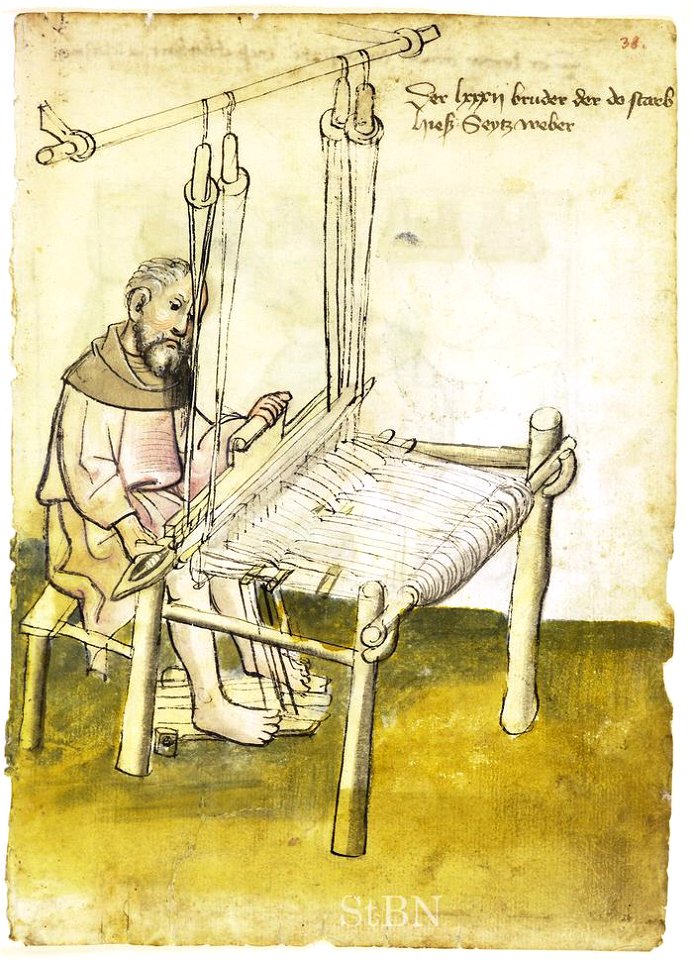 38.
Der lxxxij bruder der do starb
hieß Seytz weber
StBN